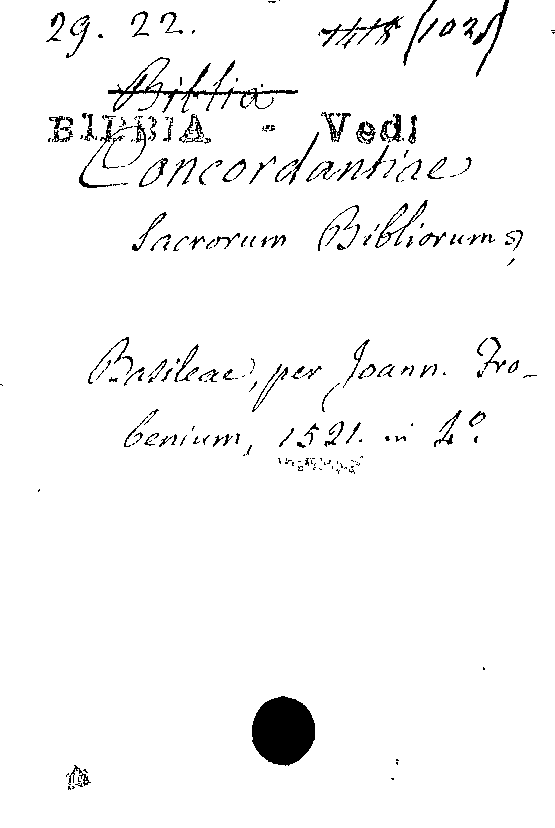 29. 22. 1418 (1028)
Biblia
BIBBIA - Vedi
Concordantiae
Sacrorum Bibliorum,
Basileae, per Joann. Fro-
benium, 1521. in 4º.